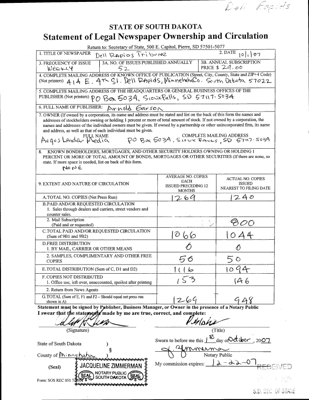 STATE OF SOUTH DAKOTA
Statement of Legal Newspaper Ownership and Circulation
Return to: Secretary of State, 500 E. Capitol, Pierre, SD 57501-5077
1. TITLE OF NEWSPAPER Dell Rapids Tribune 2. DATE 10/1/07
3. FREQUENCY OF ISSUE Weekly 3A. NO. OF ISSUES PUBLISHED ANNUALLY 52 3B. ANNUAL SUBSCRIPTION PRICE $
4. COMPLETE MAILING ADDRESS OF KNOWN OFFICE OF PUBLICATION (Street, City, County, State and ZIP+4 Code)
(Not printers) 414 E. 4th St. Dell Rapids, Minnehaha Co. South Dakota, 57022
5. COMPLETE MAILING ADDRESS OF THE HEADQUARTERS OR GENERAL BUSINESS OFFICES OF THE
PUBLISHERS (Not printers) PO Box 5034, Sioux Falls, SD 57117-5034
6. FULL NAME OF PUBLISHER Arnold Garson
7. OWNER (If owned by a corporation, its name and address must be stated and list on the back of this form the names and
addresses of stockholders owning or holding 1 percent or more of total amount of stock. If not owned by a corporation, the
names and addresses of the individual owners must be given. If owned by a partnership or other unincorporated firm, its name
and address, as well as that of each individual must be given.
FULL NAME COMPLETE MAILING ADDRESS
Argus Leader Media PO Box 5034, Sioux Falls, SD 57117-5034
8. KNOWN BONDHOLDERS, MORTGAGES, AND OTHER SECURITY HOLDERS OWNING OR HOLDING 1
PERCENT OR MORE OF TOTAL AMOUNT OF BONDS, MORTGAGES OR OTHER SECURITIES (If there are none, so
state. If more space is needed, list on back of this form.
None
9. EXTENT AND NATURE OF CIRCULATION
AVERAGE NO. COPIES EACH ISSUED PRECEDING 12 MONTHS
ACTUAL NO. COPIES ISSUED NEAREST TO FILING DATE
A. TOTAL NO. COPIES (Net Press Run) 1269 1240
B. PAID AND/OR REQUESTED CIRCULATION
1. Sales through dealers and carriers, street vendors and
counter sales.
2. Mail Subscription
(Paid and or requested) 800
C. TOTAL PAID AND/OR REQUESTED CIRCULATION
(Sum of 9B1 and 9B2) 1066 1044
D. FREE DISTRIBUTION
1. BY MAIL, CARRIER OR OTHER MEANS 0 0
2. SAMPLES, COMPLIMENTARY AND OTHER FREE
COPIES 50 50
E. TOTAL DISTRIBUTION (Sum of C, D1 and D2) 1116 1094
F. COPIES NOT DISTRIBUTED
1. Office use, left over, unaccounted, spoiled after printing 153 146
2. Return from News Agents
G. TOTAL (Sum of E, F1 and F2 - Should equal net press run
shown in A) 1269 948
Statement must be signed by Publisher, Business Manager, or Owner in the presence of a Notary Public
I swear that the statements made by me are true, correct, and complete:
Publisher
(Signature) (Title)
State of South Dakota ) Sworn to before me this 1st day of October, 2007
County of Minnehaha ) Notary Public
(Seal) My commission expires: 12-22-07
JACQUELINE ZIMMERMAN
NOTARY PUBLIC
SOUTH DAKOTA
SEAL SEAL
RECEIVED